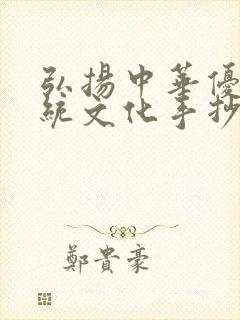 弘揚中華優
統文化手抄
鄭貴豪